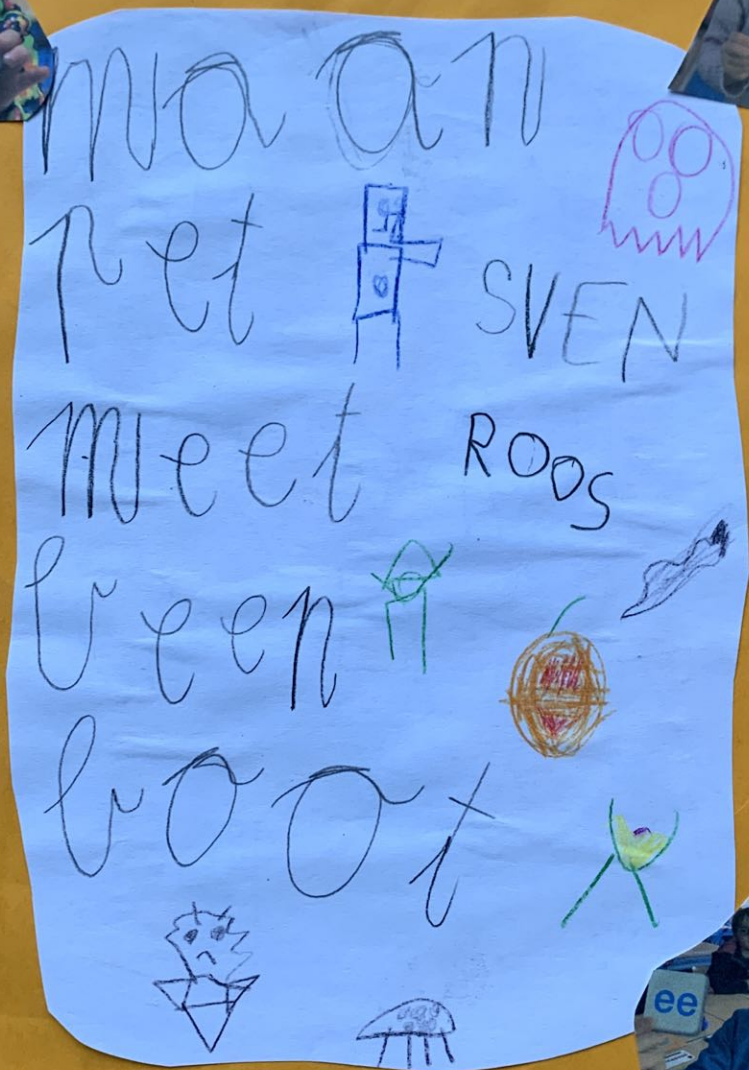 maan
pet SVEN
meet ROOS
been
boot
ee